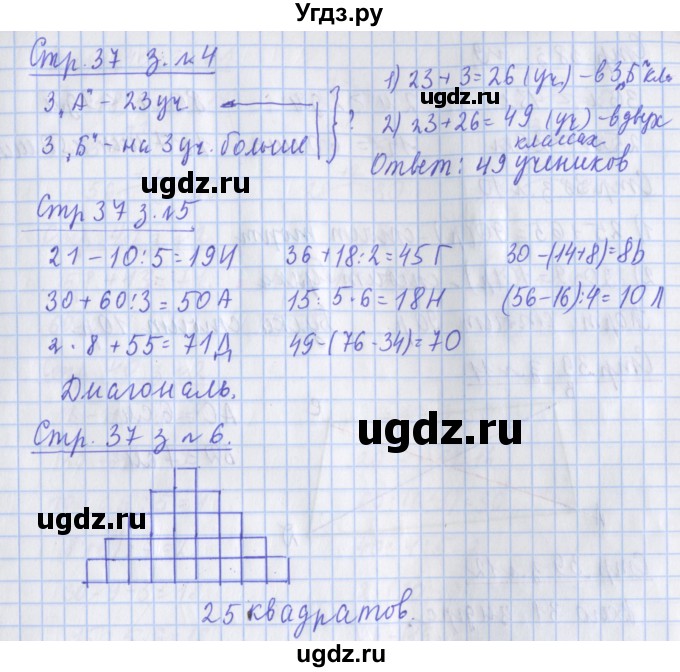 Угдз.ру
Стр. 37 з. №4
3 „А" - 23 уч
3 „Б" - на 3 уч. больше
?
1) 23 + 3 = 26 (уч.) - в 3„Б" кл.
2) 23 + 26 = 49 (уч) - в двух
классах
Ответ: 49 учеников
Стр 37 з. №5
21 - 10 : 5 = 19И
36 + 18 : 2 = 45 Г
30 - (14+8) = 8Ь
30 + 60 : 3 = 50 А
15 : 5 · 6 = 18 Н
(56-16) : 4 = 10 Л
2 · 8 + 55 = 71Д
49 - (76 - 34) = 7О
Диагональ.
Стр. 37 з № 6.
25 квадратов.
ugdz.ru
ugdz.ru
ugdz.ru
ugdz.ru
ugdz.ru
ugdz.ru
ugdz.ru
ugdz.ru
ugdz.ru